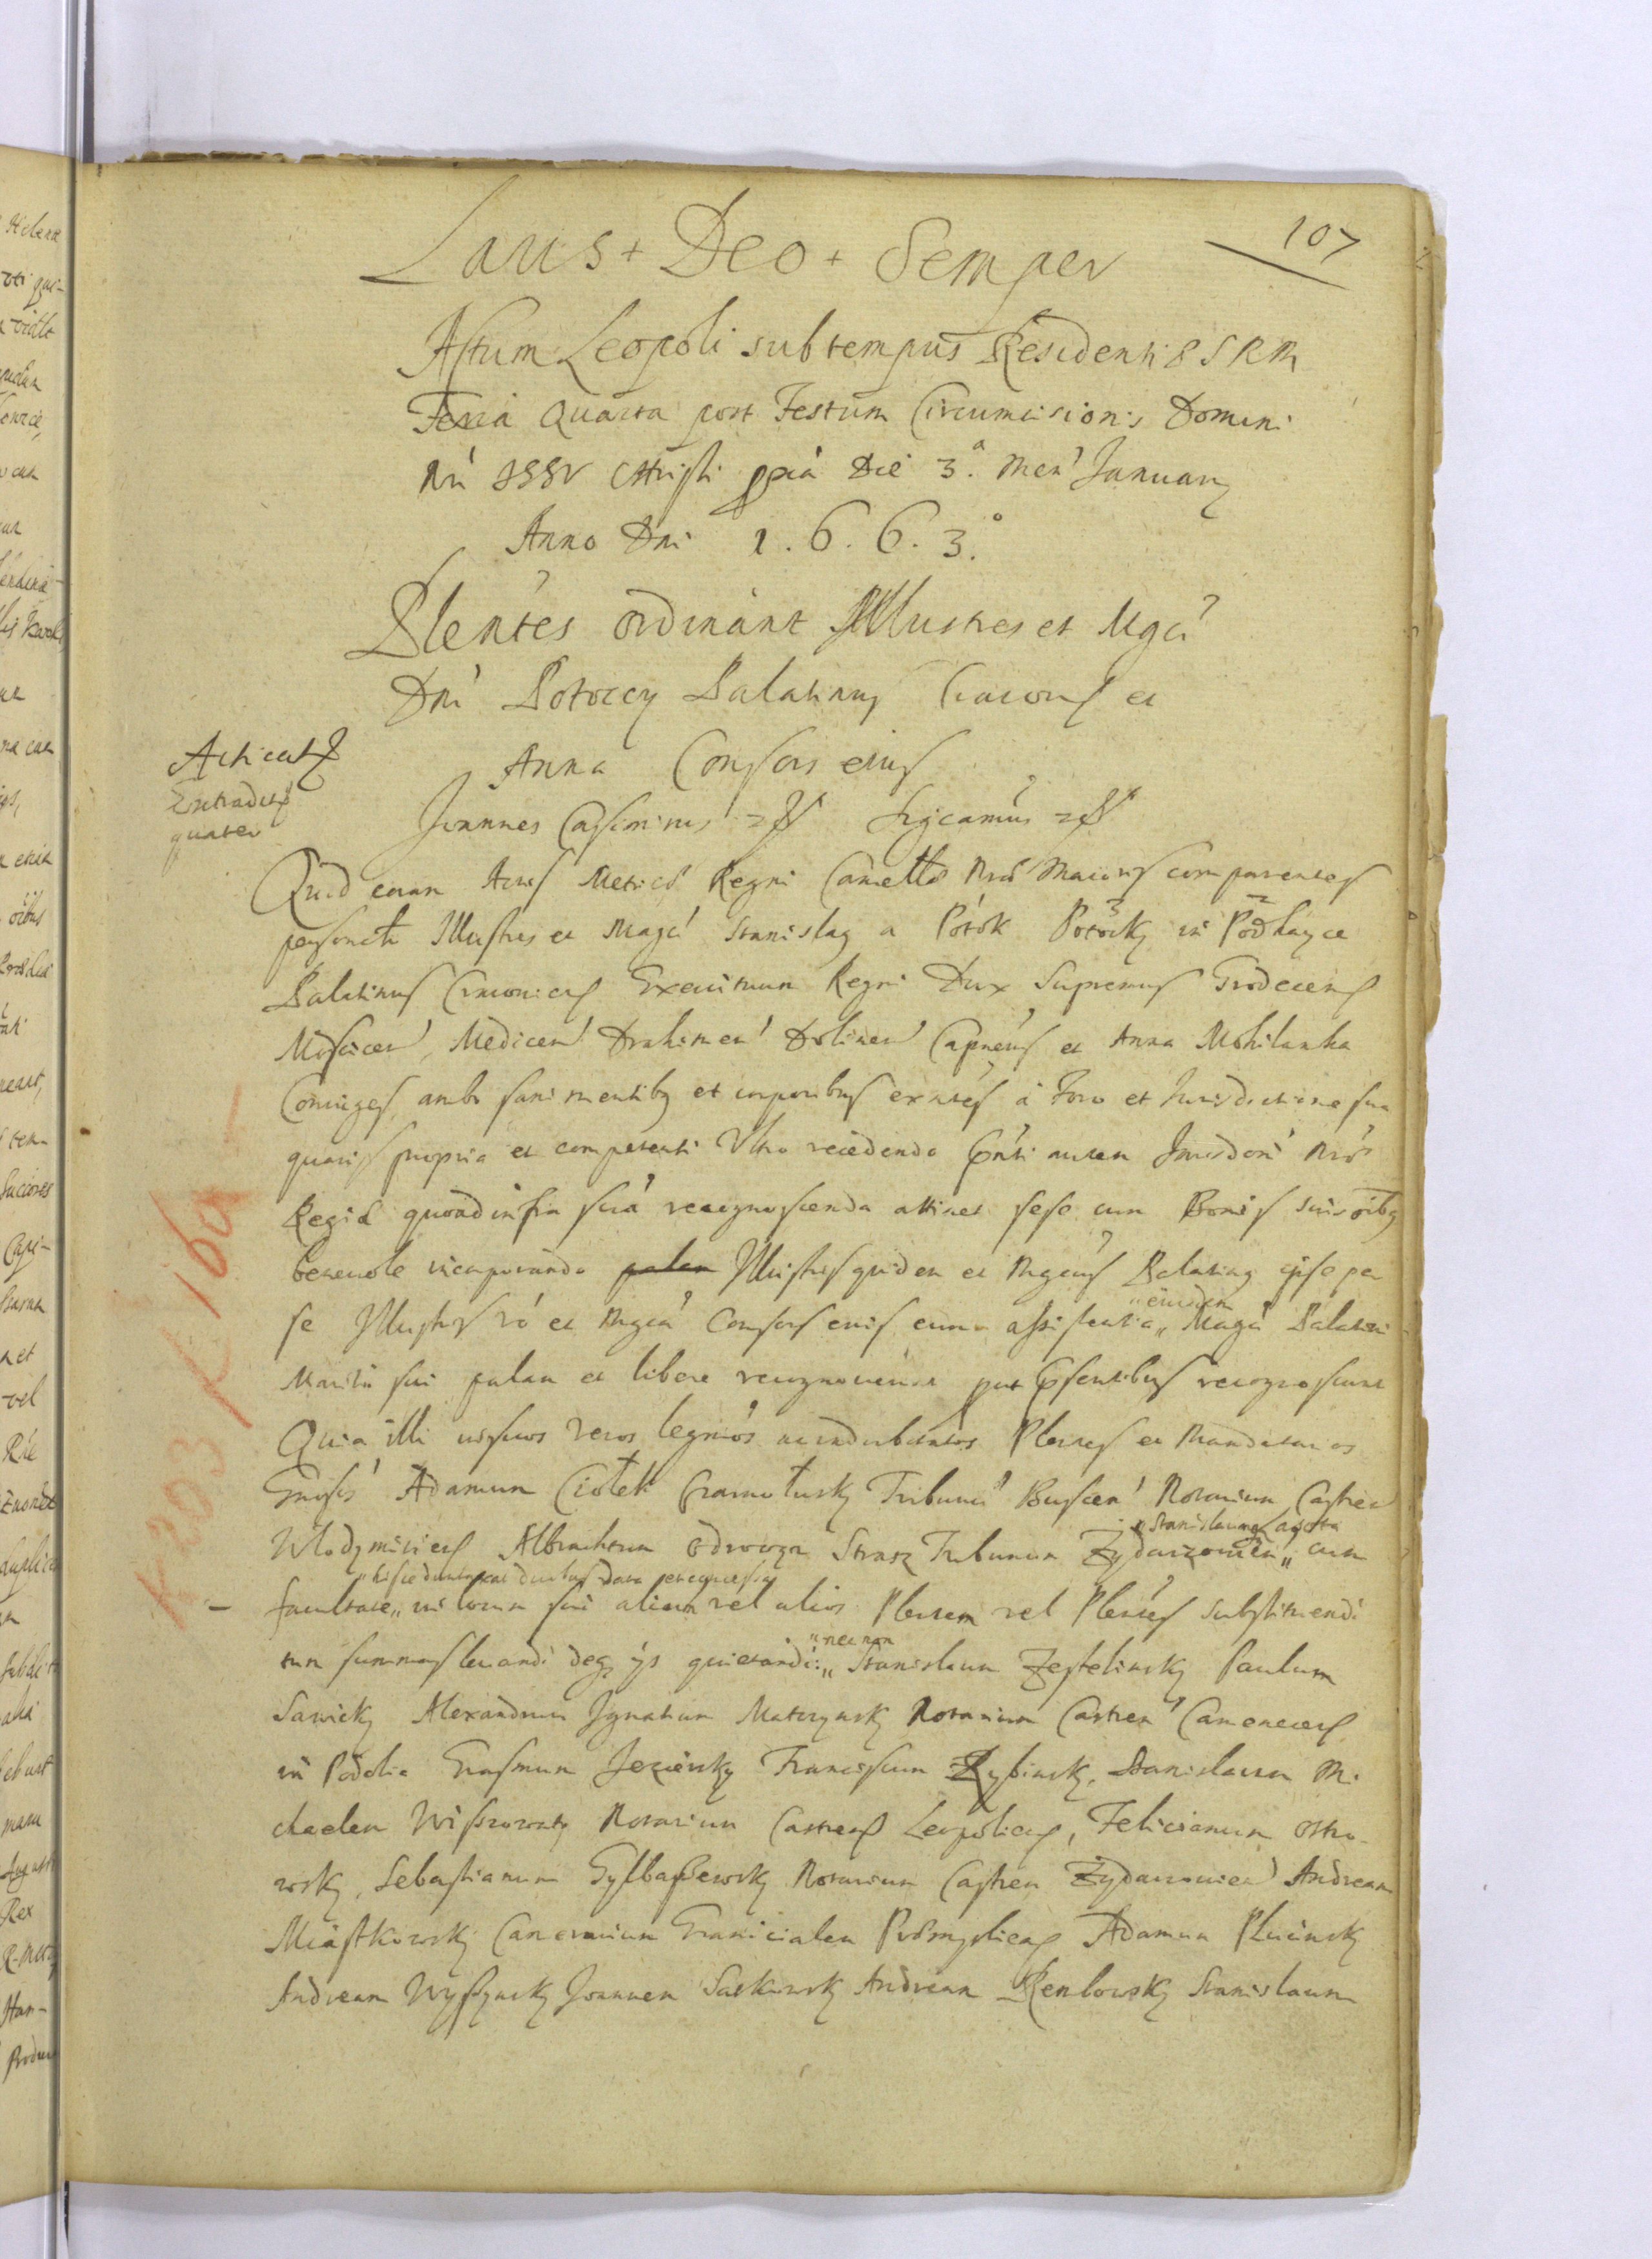 107
Laus + Deo + Semper
Actum Leopoli sub tempus Residentiæ S R M
Feria Quarta post Festum Circumcisionis Domini
Nri JESV Christi pxià Die 3.a Men' January
Anno Dni 1.6.6.3.o
Plentes ordinant Illustres et Mgci
Dni Potoccy Palatinus Cracovs et
Anna Consors eius
Acticat
Extradit
quater
Joannes Casimirus Sigcamus
Quod coram Actis Metices Regni Cancellæ Nræ Maioris comparentes
personalr Illustres et Magci Stanislaus a Potok Potocky in Podhayce
Palatinus Cracovien Exercituum Regni Dux Supremus Grodecens
Mosciceñ, Mediceñ Drahimeñ Dolineñ Capneus et Anna Mohilanka
Coniuges, ambo sani mentibus et corporibus extntes à Foro et Jurisdictione sua
quavis propria et competenti Ultro recedendo Pnti autem Jurisdoni Nræ
Regiæ quoad infra scta recognoscenda attinet sese cum Bonis suis oibus
benevole incorporando palam Illustris quidem et Mgcus Palatinus ipse per
se Illustris vo et Mgca Consors eius cum assistentia „ eiusdem Magci Palatini
Mariti sui palam et libere recognoverunt put Psentibus recognoscunt
Quia illi ussuos veros legmos ac indubitatos Plentes et Mandatarios
Gnosos Adamum Ciołek Czarnołusky Tribunū Busceñ Notarium Castreñ
Wlodzmiriens Albrachtum Odrowąz Strasz Tribunum Zydaczovieñ „ Stanislaum cum
facultate „ in locum sui alium vel alios Plentem vel Plentes substituendi
tum summas levandi deq ys quietandi: „ nec non Stanislaum Zestelinsky Paulum
Sawicky Alexandrum Ignatium Matczynsky Notarium Castreñ Camenecens
in Podolia Erasmum Jeziersky Franciscum Zybinsky, Stanislaum Mi-
chaelem Wiszowaty Notarium Castrens Leopoliens, Felicianum Ostro-
wsky, Sebastianum Gylbaszewsky Notarium Castren Zydaczovieñ Andream
Miastkowsky Camerarium Granicialem Præmysliens Adamum Plucinsky
Andream Wyszynsky Joannem Saskowsky Andream Remlowsky Stanislaum